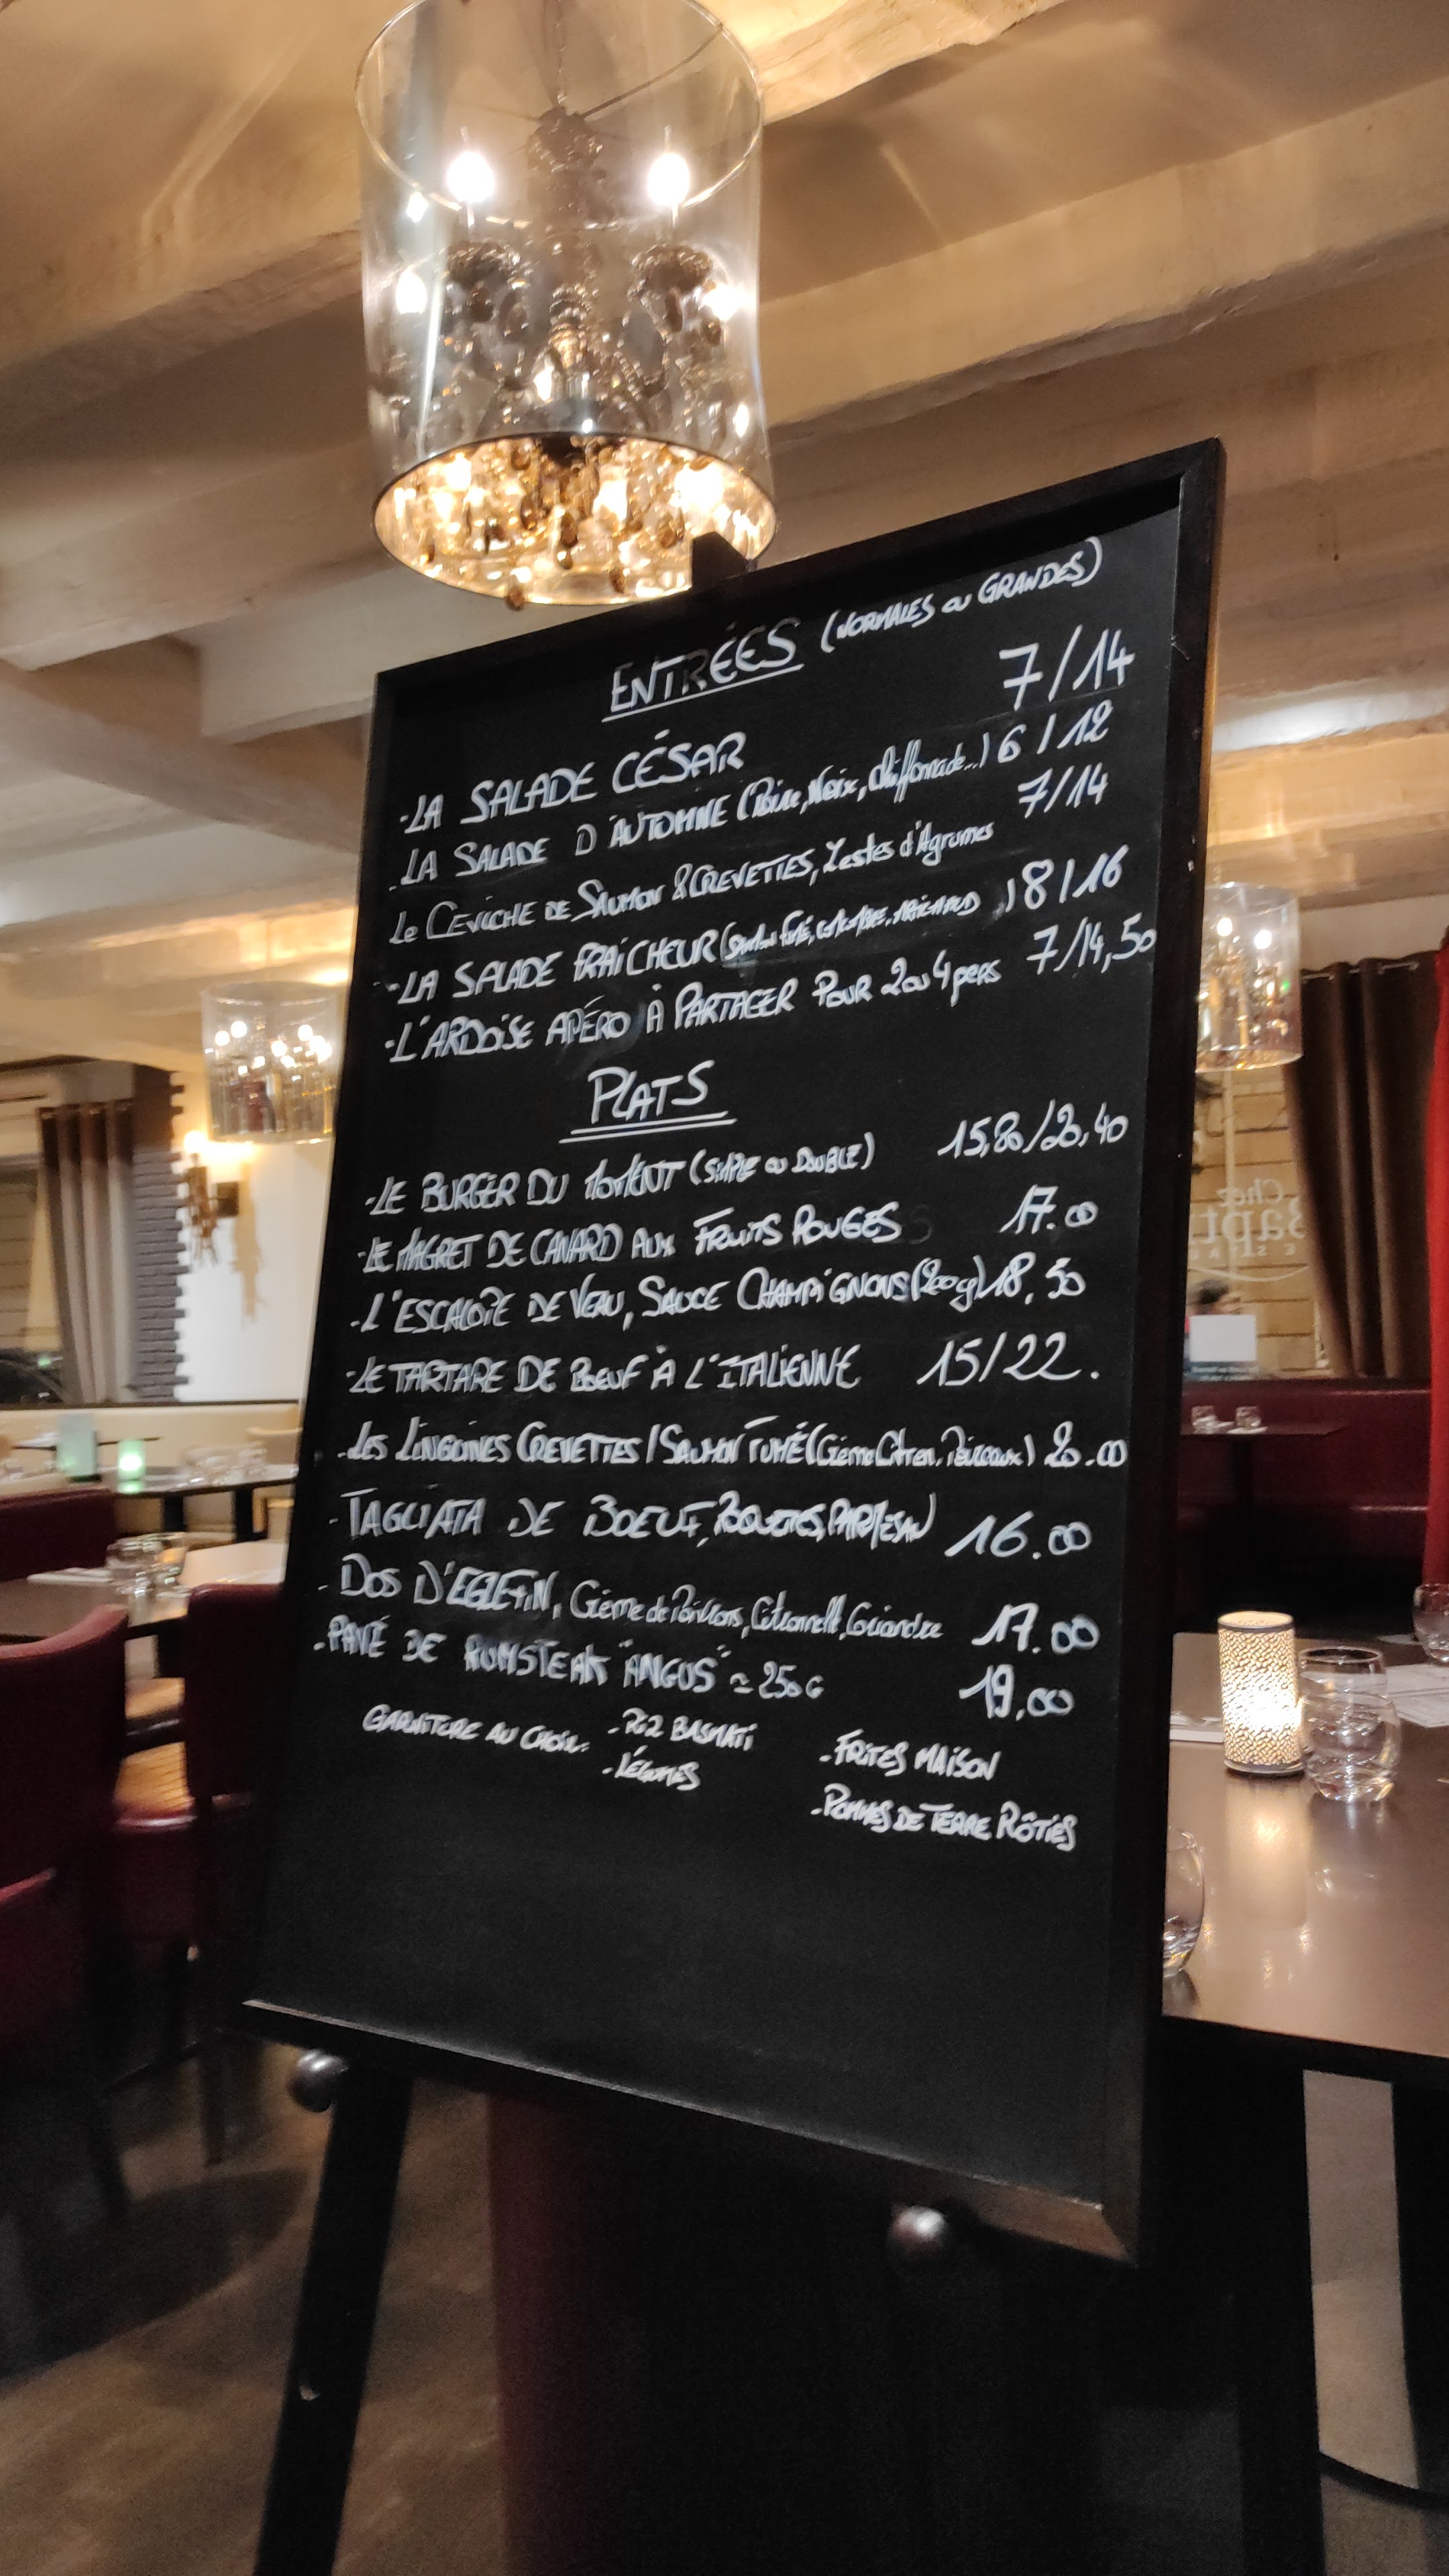 ENTRÉES (NORMALES ou GRANDES)
-LA SALADE CÉSAR 7/14
-LA SALADE D'AUTOMNE (Poire, Noix, Chiffonnade...) 6/12
Le CEVICHE DE SAUMON & CREVETTES, Zestes d'Agrumes 7/14
-LA SALADE FRAICHEUR (SAUMON FUMÉ, ) 8/16
-L'ARDOISE APÉRO À PARTAGER POUR 2 ou 4 pers 7/14,50
PLATS
-LE BURGER DU MOMENT (SIMPLE ou DOUBLE) 15,80/20,40
-LE MAGRET DE CANARD AUX FRUITS ROUGES 17.00
-L'ESCALOPE DE VEAU, SAUCE CHAMPIGNONS (200g) 18,50
-LE TARTARE DE BOEUF À L'ITALIENNE 15/22.
-LES LINGUINES CREVETTES / SAUMON FUMÉ (Crème Citron, Poireaux) 20.00
-TAGLIATA DE BOEUF, ROQUETTES, PARMESAN) 16.00
-DOS D'EGLEFIN, Crème de Poivrons, Citronnelle, Coriandre 17.00
-PAVÉ DE RUMSTEAK "ANGUS" ≃ 250G 19,00
GARNITURE AU CHOIX: -RIZ BASMATI -FRITES MAISON
-LÉGUMES -POMMES DE TERRE RÔTIES
Chez